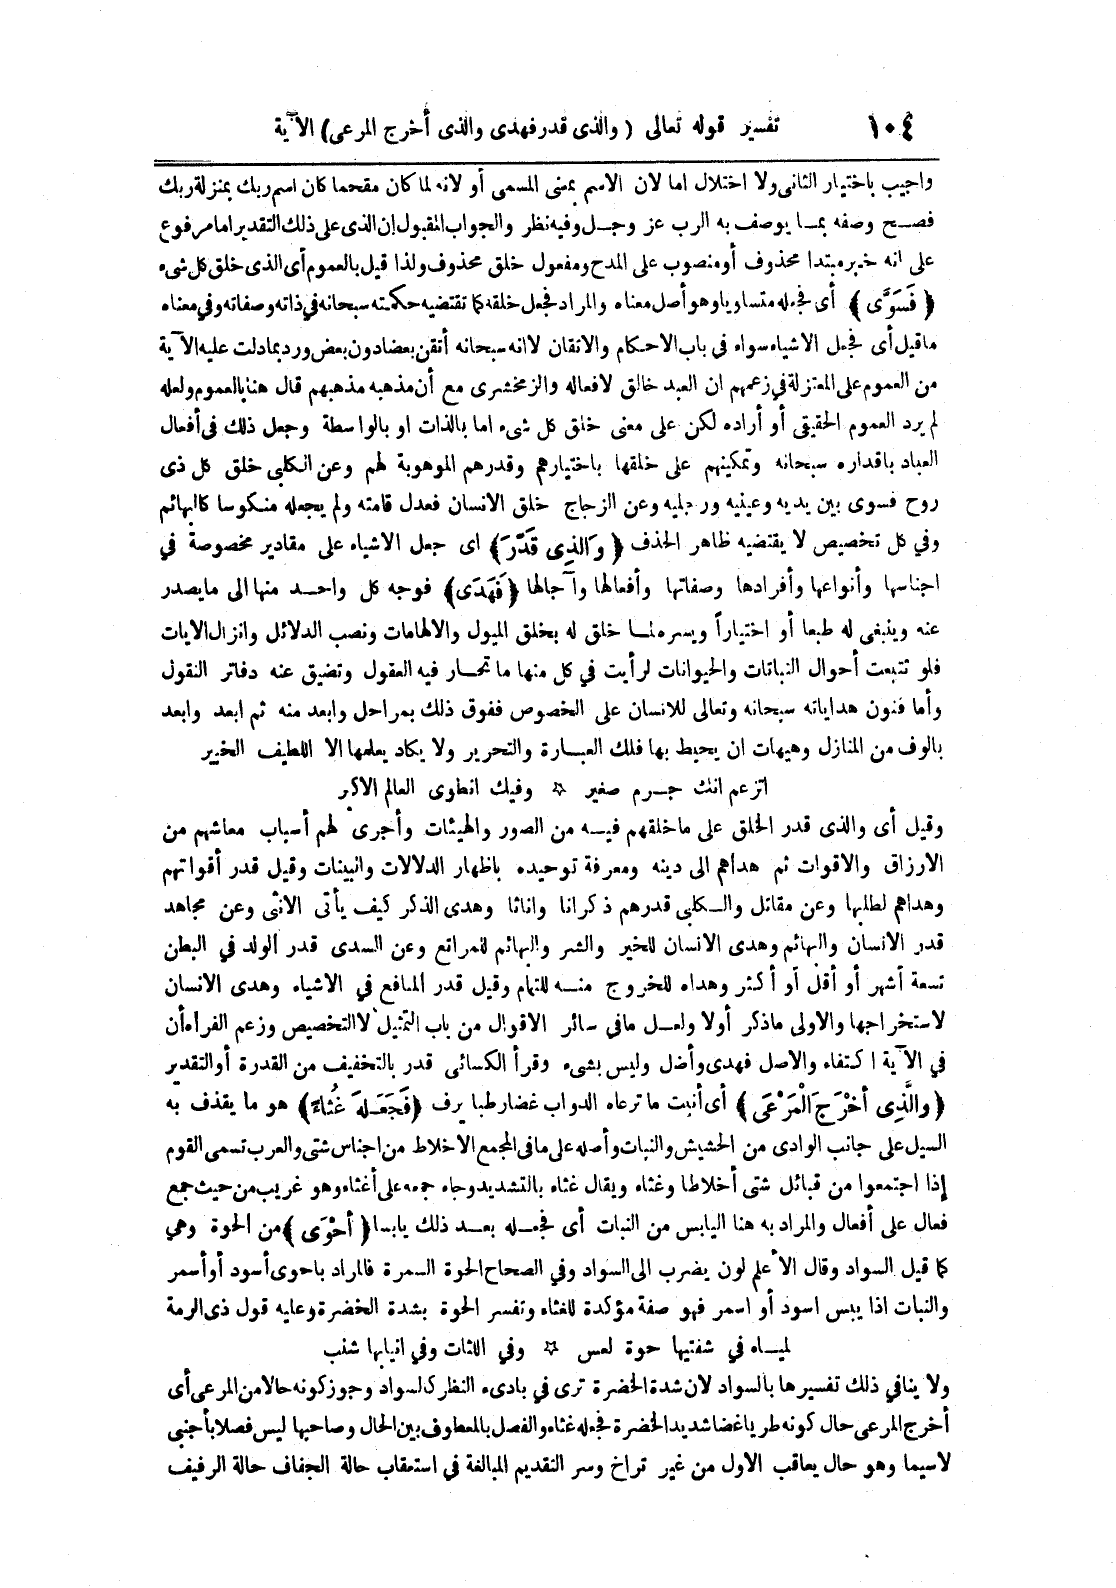 ١٠٤ تفسير قوله تعالى ( والذى قدر فهدى والذى أخرج المرعى ) الآية
واجيب باختيار الثانى ولا اختلال اما لان الاسم بمعنى المسمى أو لانه لما كان مقحما كان اسم ربك بمنزلة ربك
فصح وصفه بما يوصف به الرب عز وجل وفيه نظر والجواب المقبول إن الذى على ذلك التقدير اما مرفوع
على انه خبر مبتدا محذوف أو منصوب على المدح ومفعول خلق محذوف ولذا قيل بالعموم أى الذى خلق كل شىء
﴿ فَسَوَّى ﴾ أى فجعله متساويا وهو أصل معناه والمراد فجعل خلقه كما تقتضيه حكمته سبحانه في ذاته وصفاته وفي معناه
ماقيل أى فجعل الاشياء سواء في باب الاحكام والاتقان لا انه سبحانه أتقن بعضا دون بعض ورد بما دلت عليه الآية
من العموم على المعتزلة في زعمهم ان العبد خالق لافعاله والزمخشرى مع أن مذهبه مذهبهم قال هنا بالعموم ولعله
لم يرد العموم الحقيقى أو أراده لكن على معنى خلق كل شىء اما بالذات او بالواسطة وجعل ذلك فى أفعال
العباد باقداره سبحانه وتمكينهم على خلقها باختيارهم وقدرهم الموهوبة لهم وعن الكلبى خلق كل ذى
روح فسوى بين يديه وعينيه ورجليه وعن الزجاج خلق الانسان فعدل قامته ولم يجعله منكوسا كالبهائم
وفي كل تخصيص لا يقتضيه ظاهر الحذف ﴿ وَالَّذِى قَدَّرَ ﴾ اى جعل الاشياء على مقادير مخصوصة في
اجناسها وأنواعها وأفرادها وصفاتها وأفعالها وآجالها ﴿ فَهَدَى ﴾ فوجه كل واحد منها الى مايصدر
عنه وينبغى له طبعا أو اختياراً ويسره لما خلق له بخلق الميول والالهامات ونصب الدلائل وانزال الايات
فلو تتبعت أحوال النباتات والحيوانات لرأيت في كل منها ما تحار فيه العقول وتضيق عنه دفاتر النقول
وأما فنون هداياته سبحانه وتعالى للانسان على الخصوص ففوق ذلك بمراحل وابعد منه ثم ابعد وابعد
بالوف من المنازل وهيهات ان يحيط بها فلك العبارة والتحرير ولا يكاد يعلمها الا اللطيف الخبير
اتزعم انك جرم صغير ☆ وفيك انطوى العالم الاكبر
وقيل أى والذى قدر الخلق على ماخلقهم فيه من الصور والهيئات وأجرى لهم أسباب معاشهم من
الارزاق والاقوات ثم هداهم الى دينه ومعرفة توحيده باظهار الدلالات والبينات وقيل قدر أقواتهم
وهداهم لطلبها وعن مقاتل والكلبى قدرهم ذكرانا واناثا وهدى الذكر كيف يأتى الانثى وعن مجاهد
قدر الانسان والبهائم وهدى الانسان للخير والشر والبهائم للمراتع وعن السدى قدر الولد في البطن
تسعة أشهر أو أقل أو أكثر وهداه للخروج منه للتمام وقيل قدر المنافع في الاشياء وهدى الانسان
لاستخراجها والاولى ماذكر أولا ولعل مافي سائر الاقوال من باب التمثيل لا التخصيص وزعم الفراء أن
في الآية اكتفاء والاصل فهدى وأضل وليس بشىء وقرأ الكسائى قدر بالتخفيف من القدرة أو التقدير
﴿ والَّذِى أَخْرَجَ الْمَرْعَى ﴾ أى أنبت ما ترعاه الدواب غضا رطبا يرف ﴿ فَجَعَلَهُ غُثَاءً ﴾ هو ما يقذف به
السيل على جانب الوادى من الحشيش والنبات وأصله على مافى المجمع الاخلاط من اجناس شتى والعرب تسمى القوم
إذا اجتمعوا من قبائل شتى أخلاطا وغثاء ويقال غثاء بالتشديد وجاء جمعه على أغثاء وهو غريب من حيث جمع
فعال على أفعال والمراد به هنا اليابس من النبات أى فجعله بعد ذلك يابسا ﴿ أَحْوَى ﴾ من الحوة وهي
كما قيل السواد وقال الأعلم لون يضرب الى السواد وفي الصحاح الحوة السمرة فالمراد باحوى أسود أو أسمر
والنبات اذا يبس اسود أو اسمر فهو صفة مؤكدة للغثاء وتفسر الحوة بشدة الخضرة وعليه قول ذى الرمة
لمياء في شفتيها حوة لعس ☆ وفي اللثات وفي انيابها شنب
ولا ينافي ذلك تفسيرها بالسواد لان شدة الخضرة ترى في بادىء النظر كالسواد وجوز كونه حالا من المرعى أى
أخرج المرعى حال كونه طريا غضا شديد الخضرة فجعله غثاء والفصل بالمعطوف بين الحال وصاحبها ليس فصلا بأجنبى
لاسيما وهو حال يعاقب الاول من غير تراخ وسر التقديم المبالغة في استعقاب حالة الجفاف حالة الرفيف